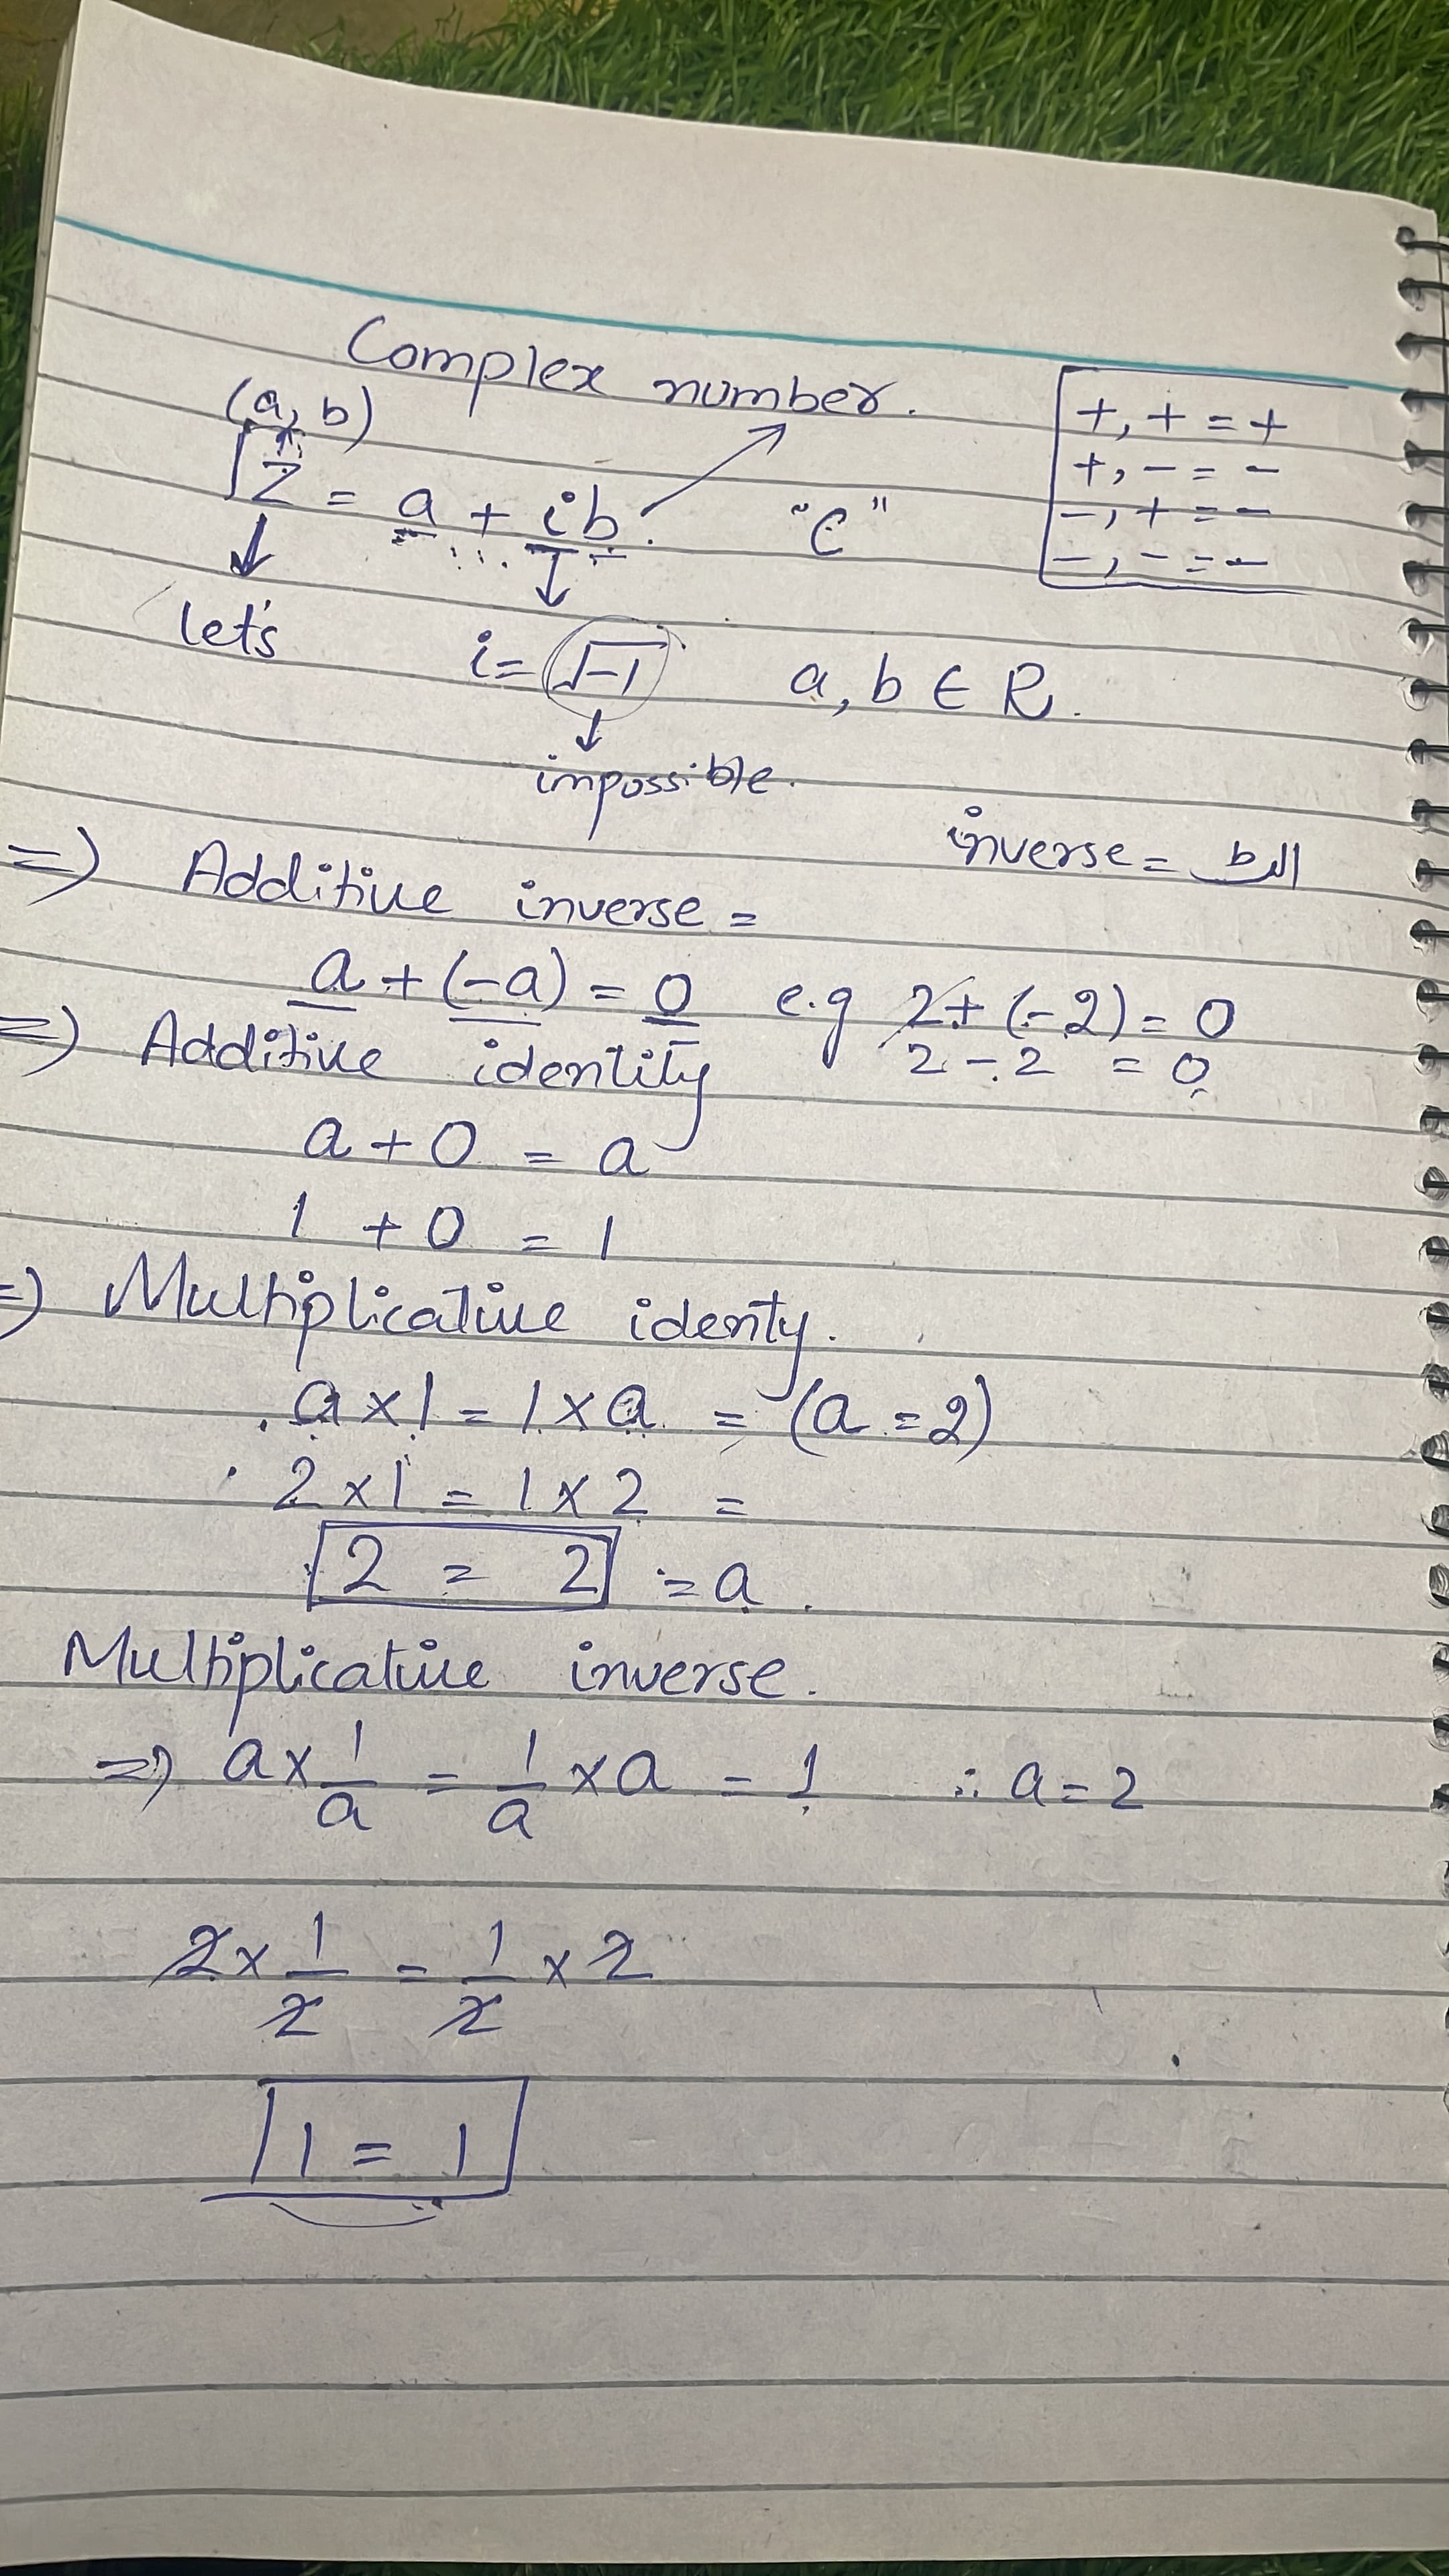 Complex number.
(a, b)
Z = a + ib.
"C"
+, + = +
+, - = -
-, + = -
-, - = -
let's
i = √-1
a, b ∈ R.
impossible.
inverse = الٹ
=) Additive inverse =
a + (-a) = 0 e.g 2 + (-2) = 0
2 - 2 = 0
=) Additive identity
a + 0 = a
1 + 0 = 1
=) Multiplicative identy.
a × 1 = 1 × a = (a = 2)
2 × 1 = 1 × 2 =
2 = 2 = a.
Multiplicative inverse.
=) a × 1/a = 1/a × a = 1 ∴ a = 2
2 × 1/2 = 1/2 × 2
1 = 1